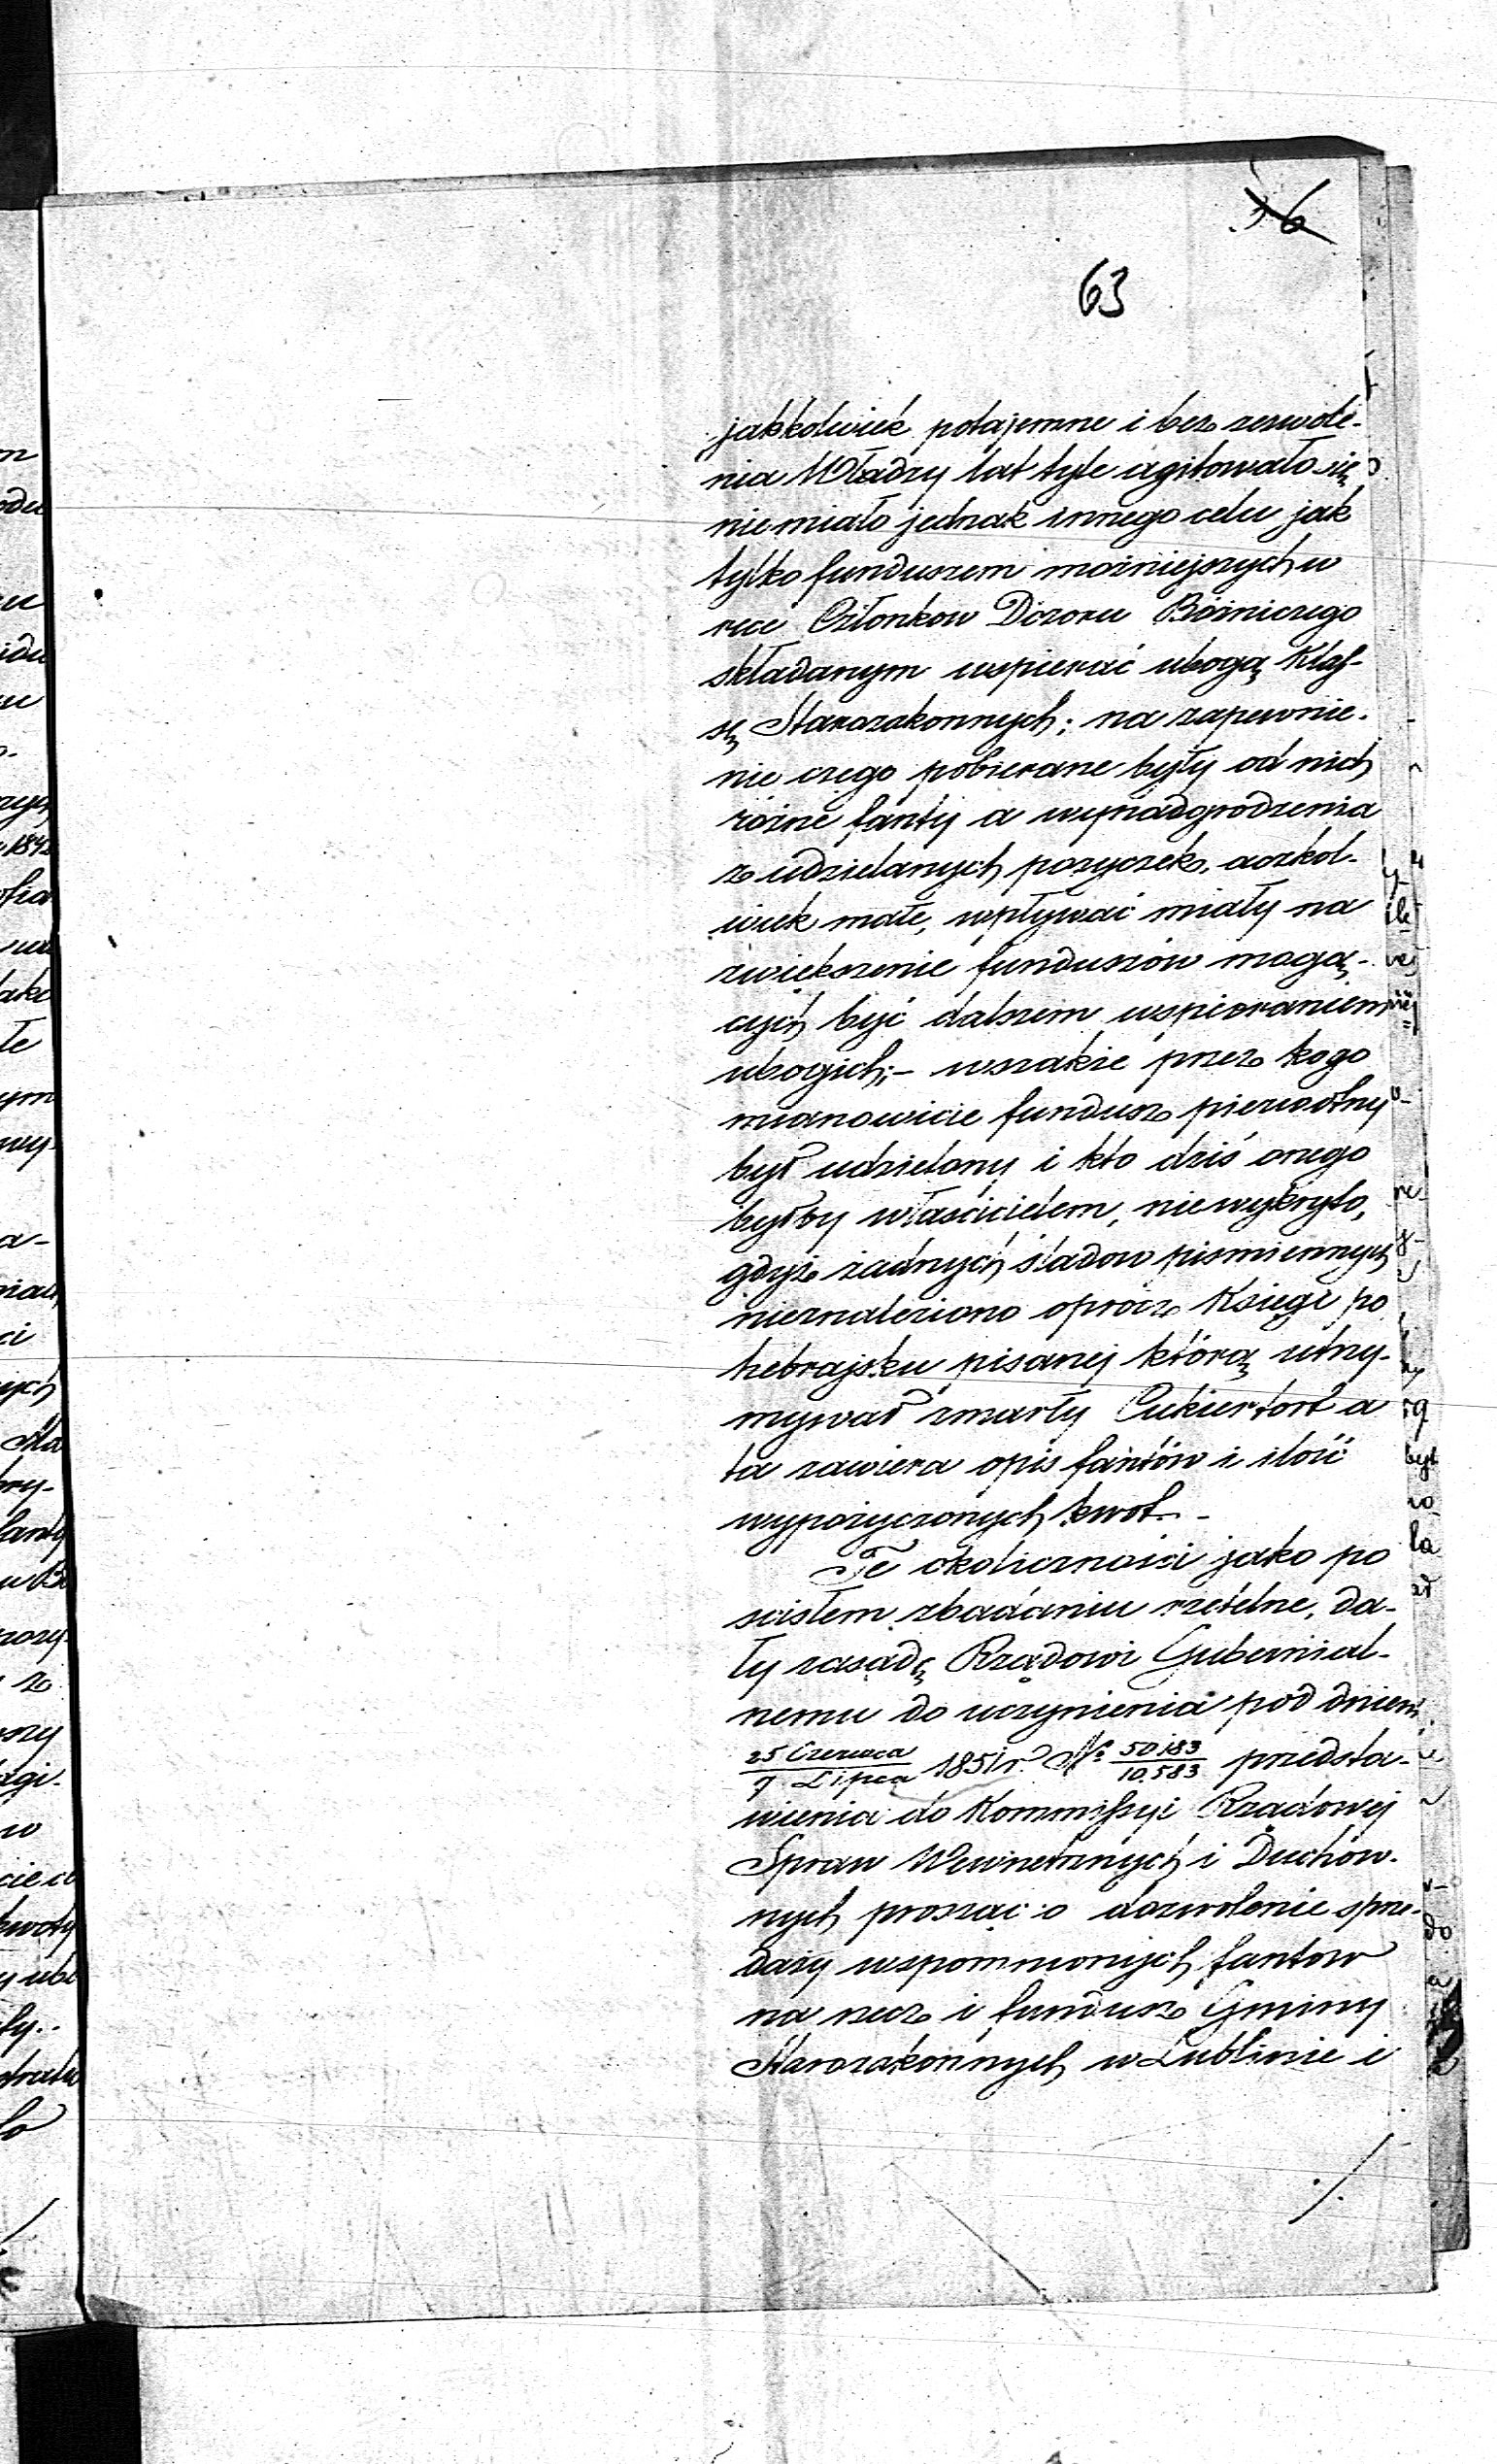 36
63
jakkolwiek potajemne i bez zezwole-
nia Władzy lat tyle agitowało się
niemiało jednak innego celu jak
tylko funduszem możniejszych w
ręce Członkow Dozoru Bóżniczego
składanym wspierać ubogą Klas-
sę Starozakonnych; na zapewnie-
nie czego pobierane były od nich
rożne fanty a wynadgrodzenia
z udzielanych pozyczek, aczkol-
wiek małe, wpływać miały na
zwiększenie funduszów mogą-
cych być dalszem wspieraniem
ubogich;- wszakże przez kogo
mianowicie fundusz pierwotny
był udzielony i kto dziś onego
byłby właścicielem, niewykryto,
gdyż żadnych śladow pismiennych
nieznaleziono oprócz Księgi po
hebrajsku pisanej którą utrzy-
mywał zmarły Cukiertort a
ta zawiera opis fantów i ilość
wypożyczonych kwot.-
Te okoliczności jako po
scisłem zbadaniu rzetelne, da-
ły zasadę Rządowi Gubernial-
nemu do uczynienia pod dniem
25 Czerwca / 7 Lipca 1851 r. No 50183 / 10.583 przedsta-
wienia do Kommissyi Rządowej
Spraw Wewnetrznych i Duchow-
nych prosząc o dozwolenie sprze-
daży wspomnionych fantow
na rzecz i fundusz Gminy
Starozakonnych w Lublinie i
./.